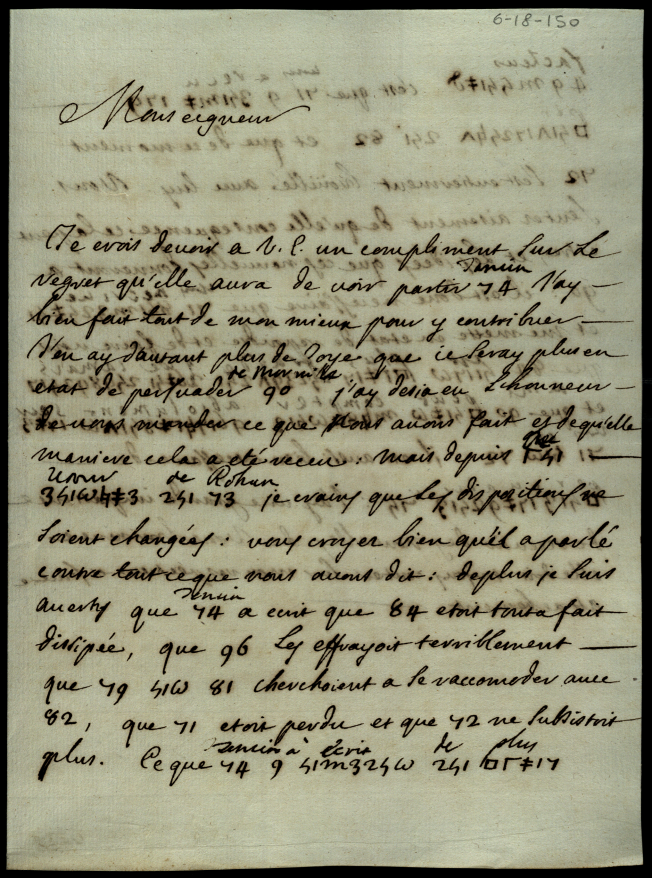 6-18-150
Monseigneur
Je crois devoir a V. E. un compliment sur le
Tencin
regret qu'elle aura de voir partir 74 J'ay —
bien fait tout de mon mieux pour y contribuer —
J'en ay d'autant plus de Joye que je seray plus en
de Morville
etat de persuader 90 j'ay desia eu L'honneur —
de vous mander ce que Nous avons fait et de quelle
maniere cela a eté receu : mais depuis
de Rohan
241 73 je crains que Les dispositions ne
soient changées : vous croyez bien qu'il a parlé
contre tout ce que nous avons dit : de plus je suis
Tencin
averty que 74 a ecrit que 84 etoit tout a fait
dissipée, que 96 Les effrayoit terriblement —
que 79 81 cherchoient a se raccomoder avec
82, que 71 etoit perdu et que 72 ne subsistoit
Tencin à écrit de plus
plus. Ce que 74 9 241